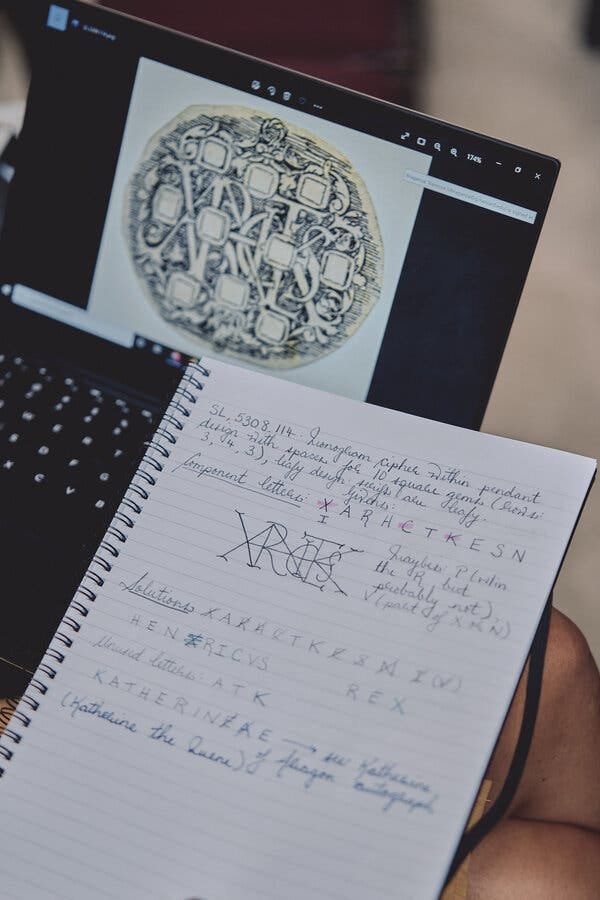 174%
SL, 5308, 114. Monogram cipher within pendant
design with spaces for 10 square gems (rows:
3, 4, 3), leafy design, serifs are leafy.
Component letters: X A R H C T K E S N
I
Maybes: P (within
the R, but
probably not),
V (part of X M N)
Solutions X A R H C T K E S N I (V)
HENRICVS REX
Unused letters: A T K
KATHERINE → see Katherine
(Katherine the Quene) of Aragon autograph